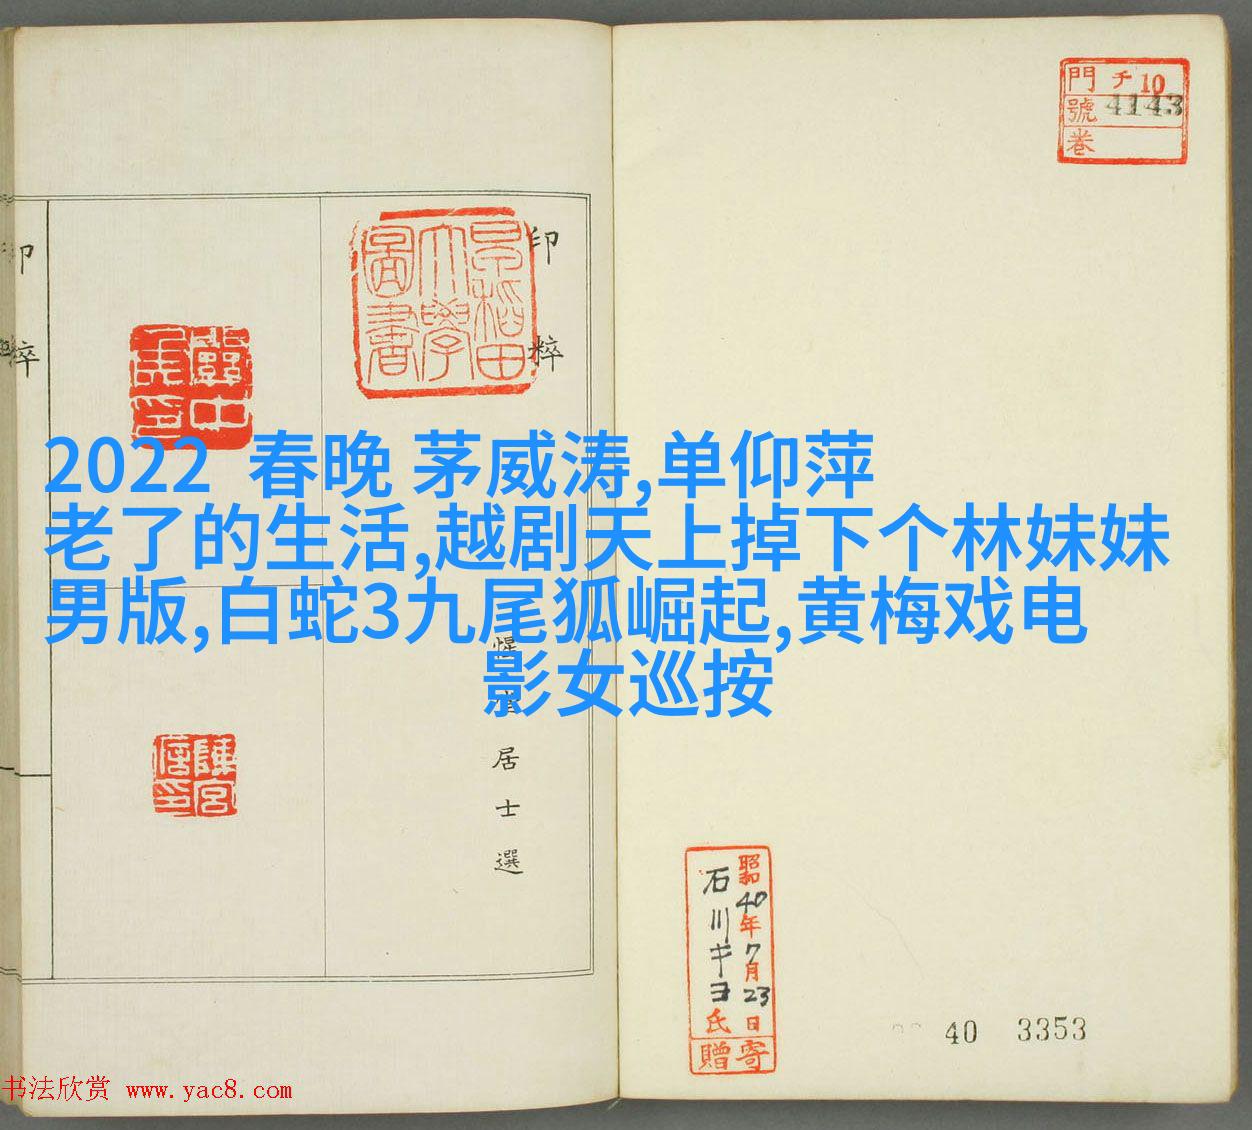 門 チ 10
號 4143
卷
印粹
印粹
早稻田
大學
圖書
2022 春晚 茅威涛,单仰萍
老了的生活,越剧天上掉下个林妹妹
男版,白蛇3九尾狐崛起,黄梅戏电
影女巡按
居士選
昭和40年7月23日
石川キヨ氏
寄贈
40 3353
书法欣赏 www.yac8.com